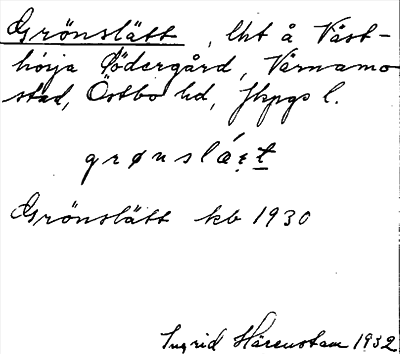 Grönslätt, lht å Väst-
hörja Södergård, Värnamo
stad, Östbo hd, Jkpgs l.
grønslǽt
Grönslätt kb 1930
Ingrid Härenstam 1932